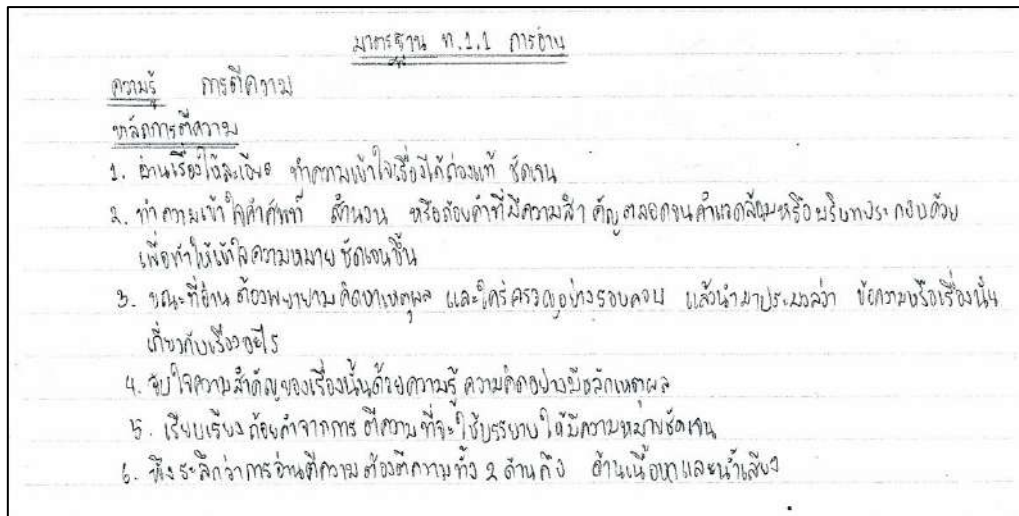 มาตรฐาน ท.1.1 การอ่าน
ความรู้ การตีความ
หลักการตีความ
1. อ่านเรื่องให้ละเอียด ทำความเข้าใจเรื่องให้ถ่องแท้ ชัดเจน
2. ทำความเข้าใจคำศัพท์ สำนวน หรือถ้อยคำที่มีความสำคัญตลอดจนคำแวดล้อมหรือบริบทประกอบด้วย
เพื่อทำให้เข้าใจความหมายชัดเจนขึ้น
3. ขณะที่อ่าน ต้องพยายามคิดหาเหตุผล และใคร่ครวญอย่างรอบคอบ แล้วนำมาประมวลว่า ข้อความหรือเรื่องนั้น
เกี่ยวกับเรื่องอะไร
4. จับใจความสำคัญของเรื่องนั้นด้วยความรู้ ความคิดอย่างมีหลักเหตุผล
5. เรียบเรียงถ้อยคำจากการตีความที่จะใช้บรรยาย ให้มีความหมายชัดเจน
6. พึงระลึกว่าการอ่านตีความต้องตีความทั้ง 2 ด้านคือ ด้านเนื้อหาและน้ำเสียง